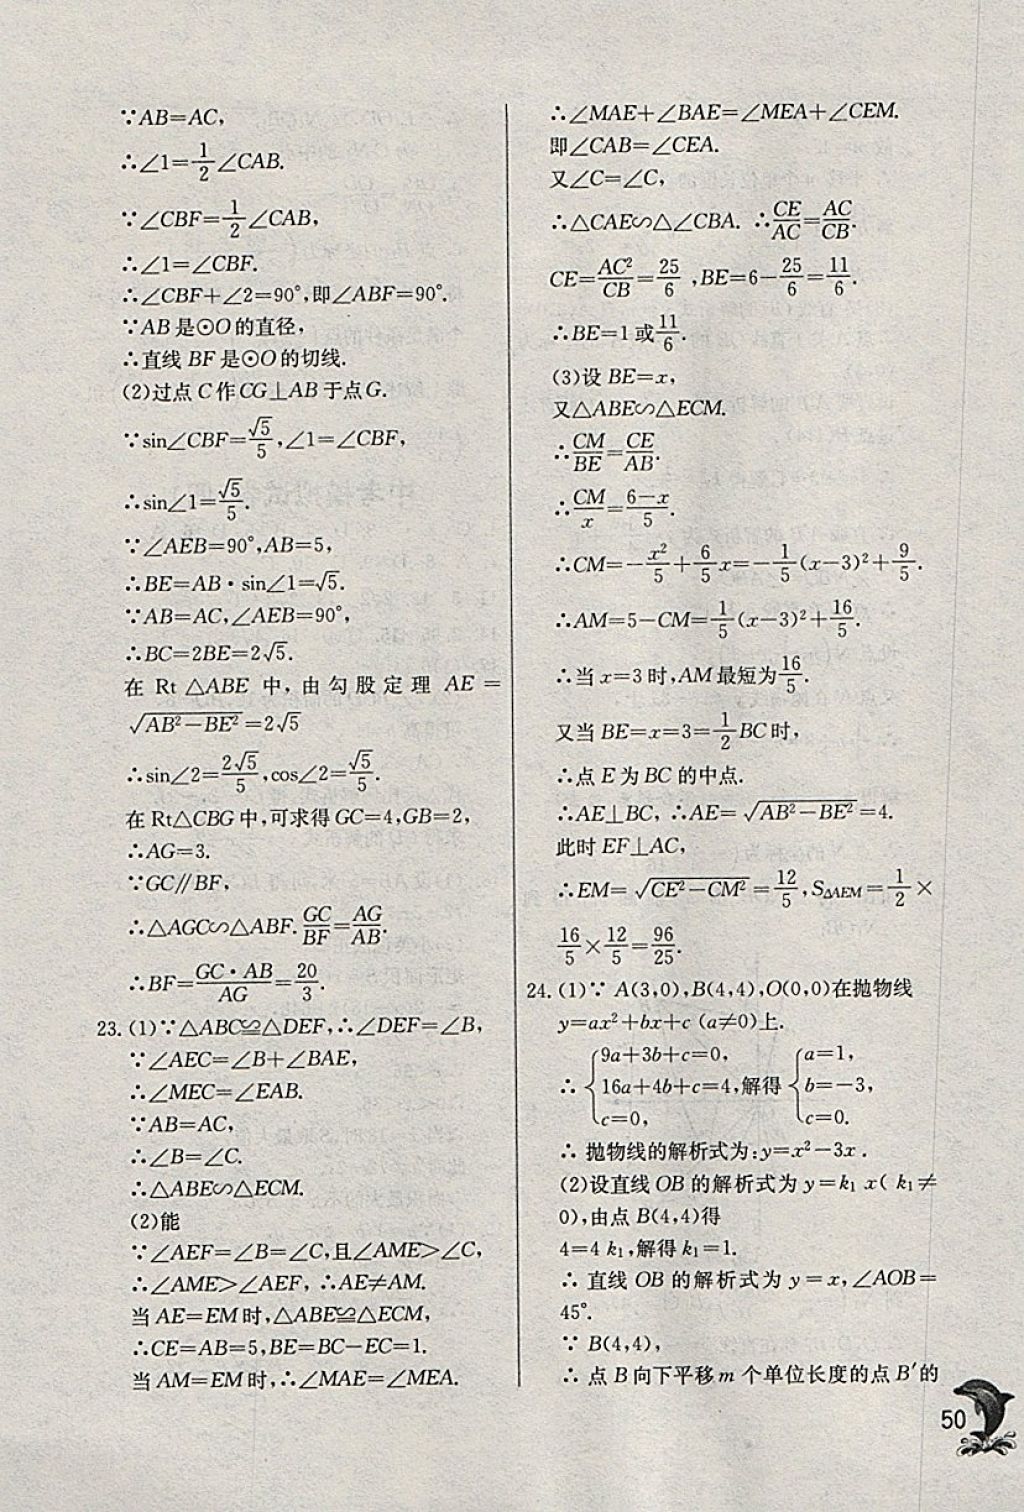 ∵AB=AC,
∴∠1=1/2∠CAB.
∵∠CBF=1/2∠CAB,
∴∠1=∠CBF.
∴∠CBF+∠2=90°,即∠ABF=90°.
∵AB是⊙O的直径,
∴直线BF是⊙O的切线.
(2)过点C作CG⊥AB于点G.
∵sin∠CBF=√5/5,∠1=∠CBF,
∴sin∠1=√5/5.
∵∠AEB=90°,AB=5,
∴BE=AB·sin∠1=√5.
∵AB=AC,∠AEB=90°,
∴BC=2BE=2√5.
在Rt△ABE中,由勾股定理AE=
√(AB²-BE²)=2√5
∴sin∠2=2√5/5,cos∠2=√5/5.
在Rt△CBG中,可求得GC=4,GB=2,
∴AG=3.
∵GC∥BF,
∴△AGC∽△ABF.GC/BF=AG/AB.
∴BF=GC·AB/AG=20/3.
23.(1)∵△ABC≌△DEF,∴∠DEF=∠B,
∵∠AEC=∠B+∠BAE,
∴∠MEC=∠EAB.
∵AB=AC,
∴∠B=∠C.
∴△ABE∽△ECM.
(2)能
∵∠AEF=∠B=∠C,且∠AME>∠C,
∴∠AME>∠AEF,∴AE≠AM.
当AE=EM时,△ABE≌△ECM,
∴CE=AB=5,BE=BC-EC=1.
当AM=EM时,∴∠MAE=∠MEA.
∴∠MAE+∠BAE=∠MEA+∠CEM.
即∠CAB=∠CEA.
又∠C=∠C,
∴△CAE∽△∠CBA.∴CE/AC=AC/CB.
CE=AC²/CB=25/6,BE=6-25/6=11/6.
∴BE=1或11/6.
(3)设BE=x,
又△ABE∽△ECM.
∴CM/BE=CE/AB.
∴CM/x=(6-x)/5.
∴CM=-x²/5+6/5x=-1/5(x-3)²+9/5.
∴AM=5-CM=1/5(x-3)²+16/5.
∴当x=3时,AM最短为16/5.
又当BE=x=3=1/2BC时,
∴点E为BC的中点.
∴AE⊥BC,∴AE=√(AB²-BE²)=4.
此时EF⊥AC,
∴EM=√(CE²-CM²)=12/5,S△AEM=1/2×
16/5×12/5=96/25.
24.(1)∵A(3,0),B(4,4),O(0,0)在抛物线
y=ax²+bx+c(a≠0)上.
{9a+3b+c=0, {a=1,
∴{16a+4b+c=4,解得{b=-3,
{c=0, {c=0.
∴抛物线的解析式为:y=x²-3x.
(2)设直线OB的解析式为y=k₁x(k₁≠
0),由点B(4,4)得
4=4k₁,解得k₁=1.
∴直线OB的解析式为y=x,∠AOB=
45°.
∵B(4,4),
∴点B向下平移m个单位长度的点B′的
50